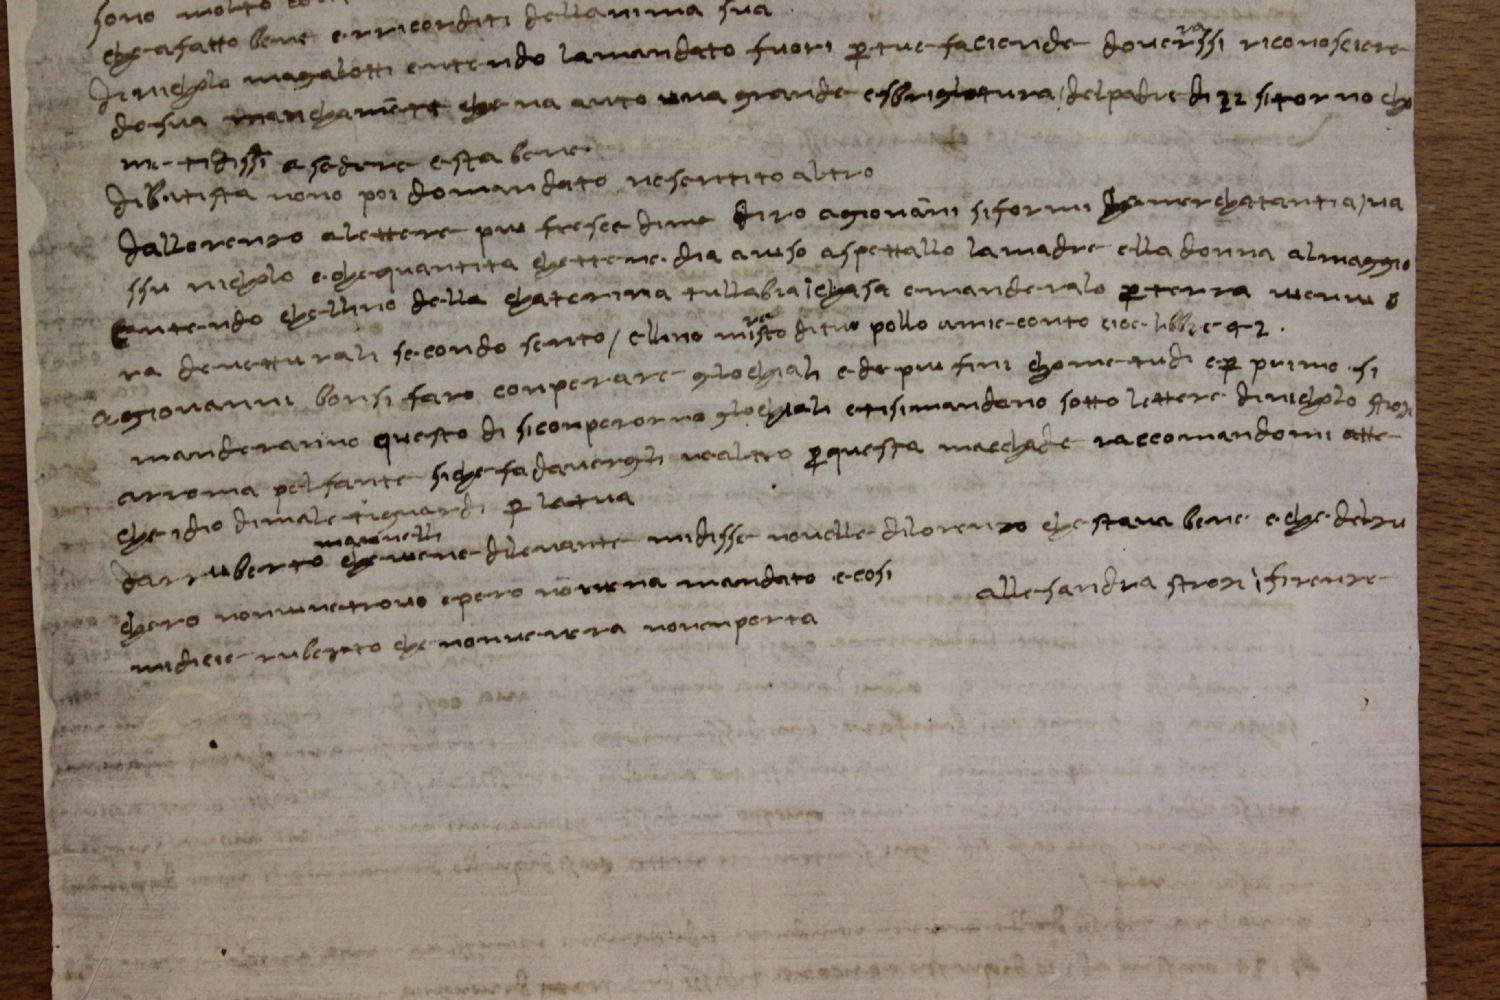 sono molto
che a fatto bene e rricorditi dellanima sua
di nicholo magalotti entendo lamandato fuori per tue faciende doverressi riconosciere
de sua manchamenti che na auto una grande essbrigliatura / del padre di 22 si tornò cho
me ti dissi a sedere e sta bene.
di batista nono poi domandato ne sentito altro
dallorenzo a lettere piu fresce di me diro a giovani si forni la merchatantia / va
ssu nicholo e che quantita chette ne dia aviso aspettallo la madre ella donna al maggio
Entendo che llino della chaterina tullabia i chasa e manderalo per terra verra o
ra de vetturali secondo sento / e llino viene misto di tuo pollo a mie conto cioe libbre 42.
a giovanni bonsi faro conperare gli ochiali e de piu fini chome tu di e per primo si
manderanno questo di si conperorno gli ochiali e tisi mandano sotto lettere di nicholo strozi
a rroma pel fante siche fa daverghi ne altro per questa macchade raccomandomi atte
che idio di male ti guardi per la tua
da rruberto mannelli che viene di levante mi disse novelle di lorenzo che stava bene e che del zu
chero nonve ne trovo e pero non ve na mandato e cosi
mi dicie ruberto che nonvenera nonenporta
allesandra strozi i firenze